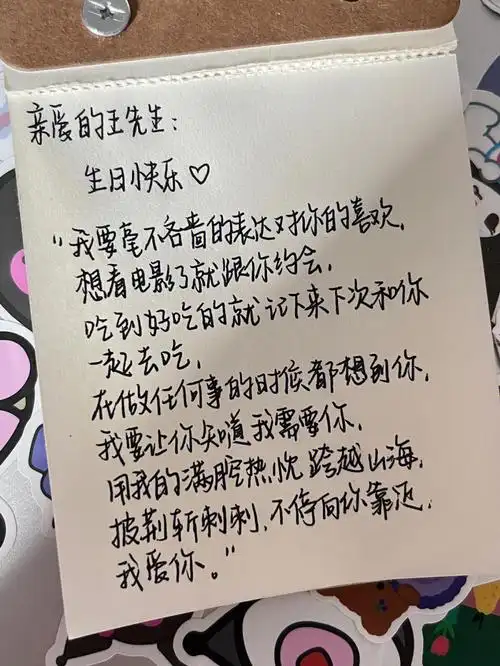 亲爱的王先生:
生日快乐♡
“我要毫不吝啬的表达对你的喜欢,
想看电影了就跟你约会,
吃到好吃的就记下来下次和你
一起去吃,
在做任何事的时候都想到你,
我要让你知道我需要你,
用我的满腔热忱跨越山海,
披荆斩刺刺,不停向你靠近,
我爱你。”